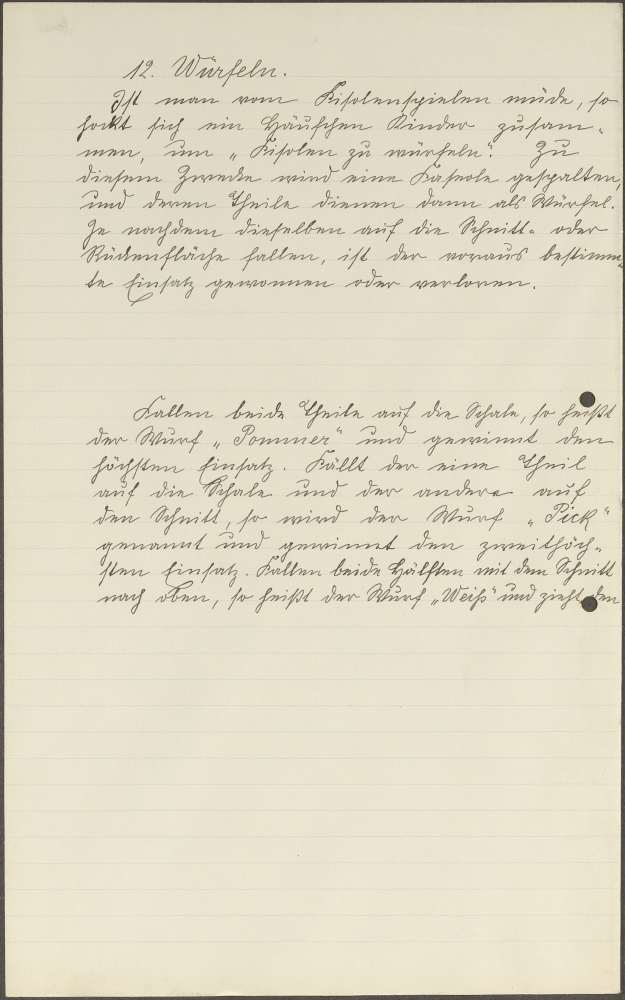 12. Würfeln.
Ist man vom Fisolenspielen müde, so
hockt sich ein Häufchen Kinder zusam-
men, um „Fisolen zu würfeln“. Zu
diesem Zwecke wird eine Faseole gespalten,
und deren Theile dienen dann als Würfel.
Je nachdem dieselben auf die Schnitt- oder
Rückenfläche fallen, ist der voraus bestimm-
te Einsatz gewonnen oder verloren.
Fallen beide Theile auf die Schale, so heißt
der Wurf „Pommer“ und gewinnt den
höchsten Einsatz. Fällt der eine Theil
auf die Schale und der andere auf
den Schnitt, so wird der Wurf „Pick“
genannt und gewinnt den zweithöch-
sten Einsatz. Fallen beide Hälften mit dem Schnitt
nach oben, so heißt der Wurf „Weiß“ und zieht den